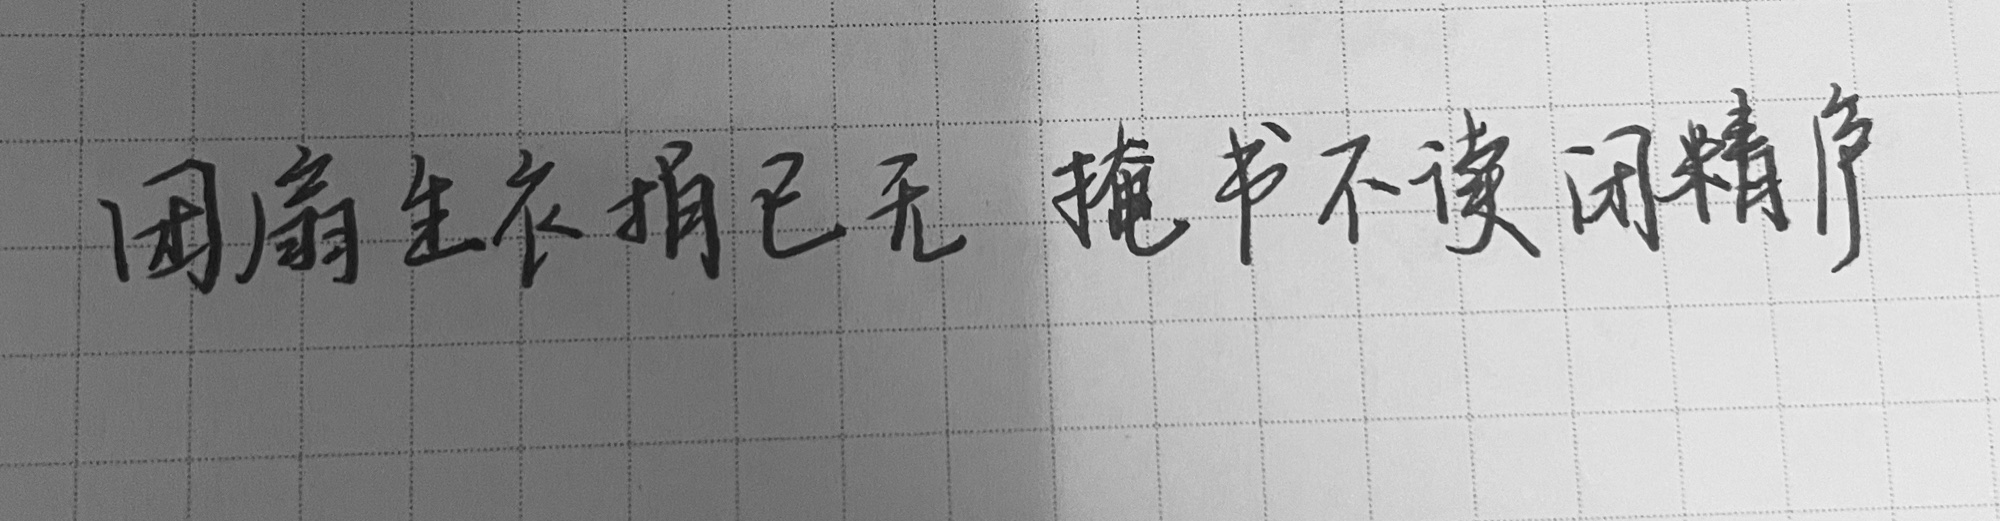 团扇生衣捐已无 掩书不读闭精庐